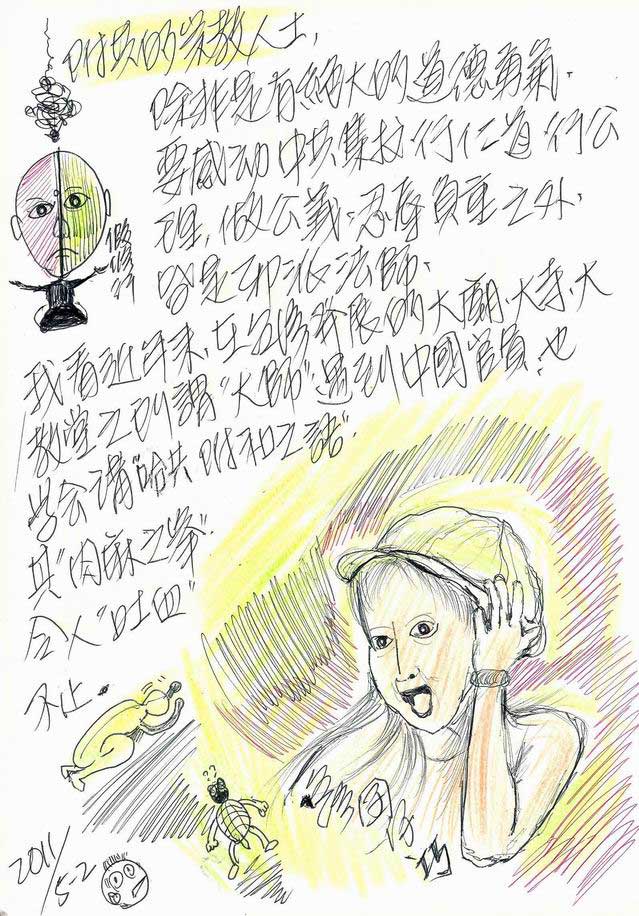 附共的宗教人士,
除非是有絕大的道德勇氣.
要感动中共集权.行仁道.行公
理,做公義,忍辱負重之外,
皆是邪派法師.
假修行
我看近年来,在台湾發展的大廟.大寺.大
教堂之所謂"大師"遇到中國官員,也
皆会講"哈共附和之話".
其"肉麻之举".
令人"吐血"
不止.
2011/5-2